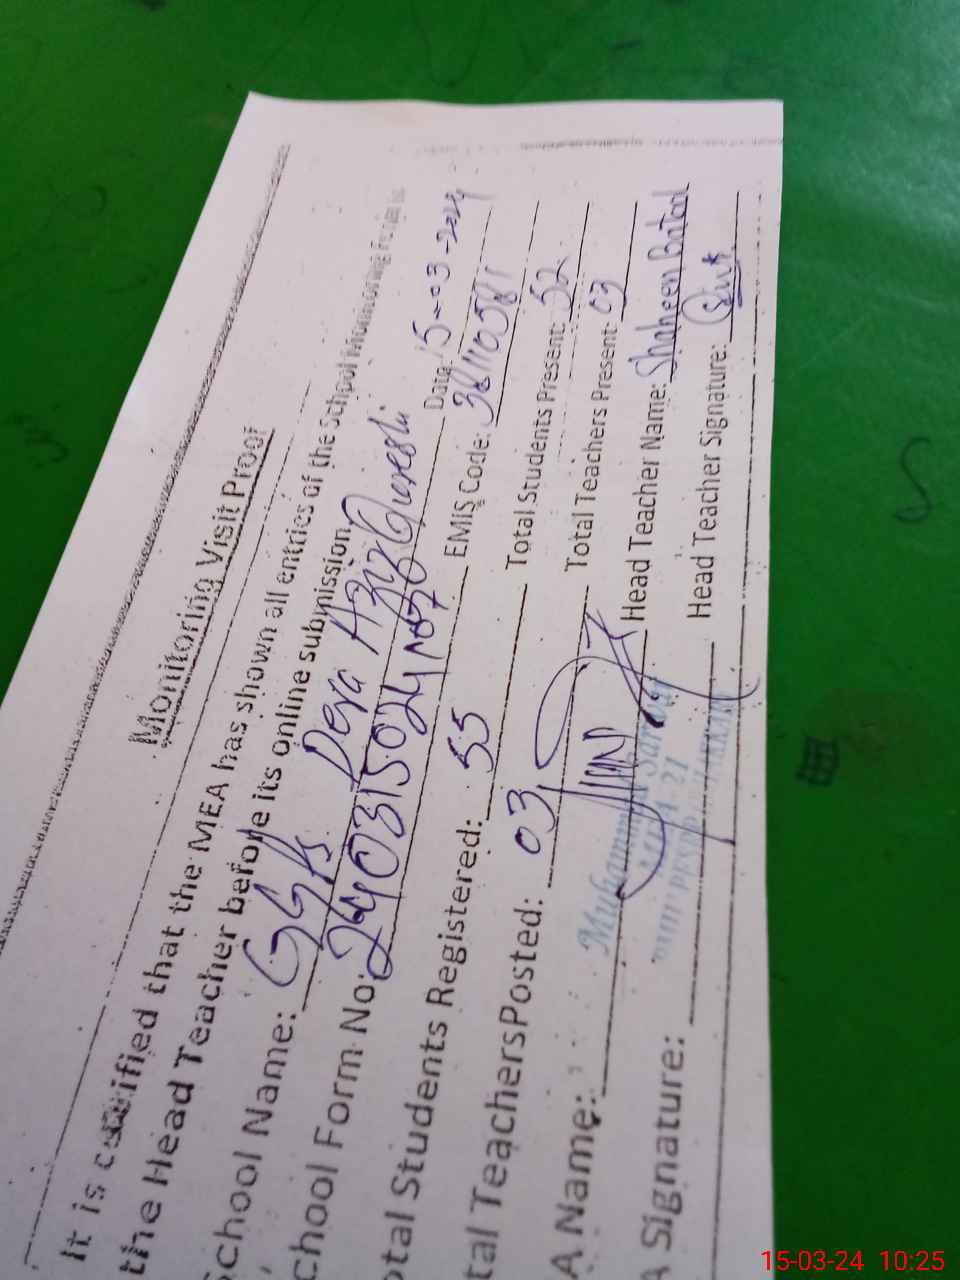 Monitoring Visit Proof
It is certified that the MEA has shown all entries of the School Monitoring
the Head Teacher before its online submission
School Name: GGPS Dera Aziz Qureshi Date: 15-03-2024
chool Form No: EMIS Code:
otal Students Registered: 55 Total Students Present: 52
tal TeachersPosted: 03 Total Teachers Present: 03
A Name: Muhammad Sarwar Head Teacher Name: Shaheen Batool
A Signature: Head Teacher Signature:
MEA-21
15-03-24 10:25